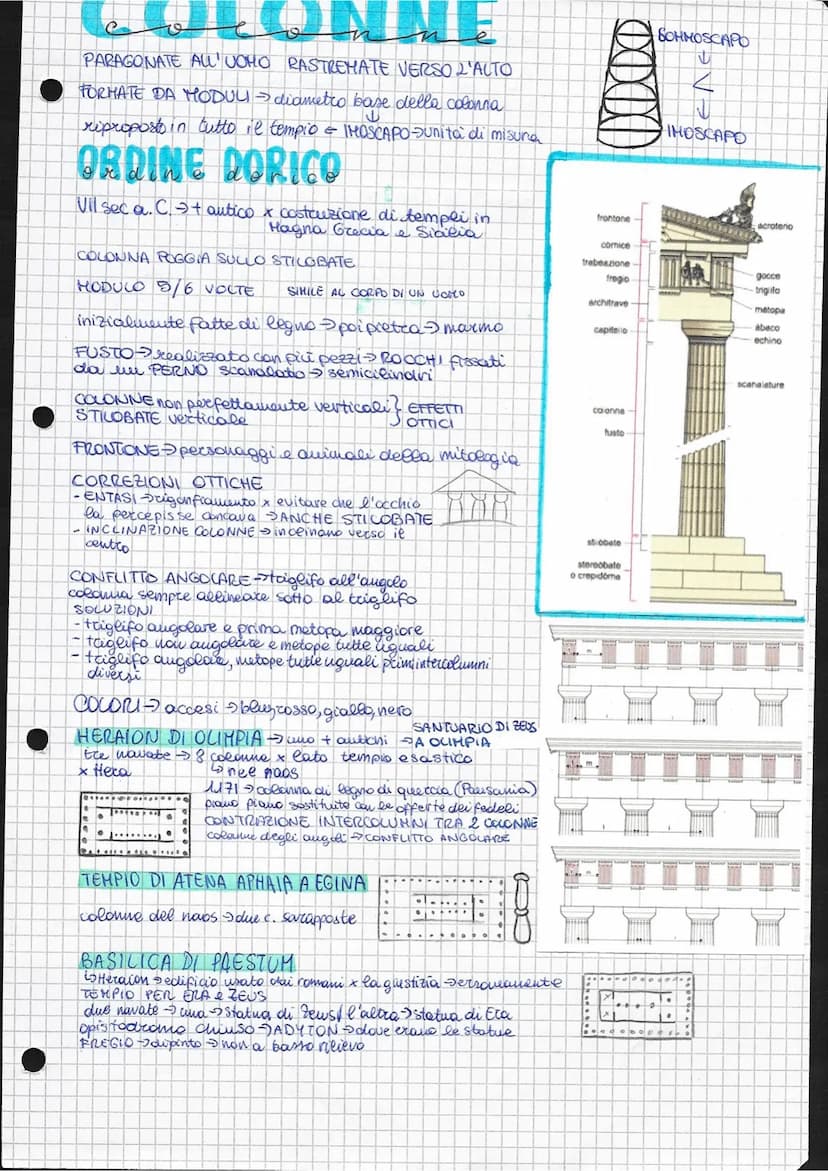 COLONNE
colonne
PARAGONATE ALL'UOMO RASTREMATE VERSO L'ALTO
FORMATE DA MODULI → diametro base della colonna
↓
riproposto in tutto il tempio ← IMOSCAPO → unità di misura
SOMMOSCAPO
↓
<
↓
IMOSCAPO
ORDINE DORICO
ordine dorico
VII sec a.C. → + antico x costruzione di templi in
Magna Grecia e Sicilia
COLONNA POGGIA SULLO STILOBATE
MODULO 5/6 VOLTE SIMILE AL CORPO DI UN UOMO
inizialmente fatte di legno → poi pietra → marmo
FUSTO → realizzato con più pezzi → ROCCHI fissati
da un PERNO scanalato → semicilindri
COLONNE non perfettamente verticali } EFFETTI
STILOBATE verticale } OTTICI
FRONTONE → personaggi e animali della mitologia
CORREZIONI OTTICHE
- ENTASI → rigonfiamento x evitare che l'occhio
la percepisse concava → ANCHE STILOBATE
- INCLINAZIONE COLONNE → inclinano verso il
centro
CONFLITTO ANGOLARE → triglifo all'angolo
colonna sempre allineate sotto al triglifo
SOLUZIONI
- triglifo angolare e prima metopa maggiore
- triglifo non angolare e metope tutte uguali
- triglifo angolare, metope tutte uguali primi intercolumni
diversi
COLORI → accesi → blu, rosso, giallo, nero
HERAION DI OLIMPIA → uno + antichi → A OLIMPIA
SANTUARIO DI ZEUS
tre navate → 8 colonne x lato tempio esastico
x Hera
↳ nel naos
1171 → colonna di legno di quercia (Pausania)
piano piano sostituite con le offerte dei fedeli
CONTRAZIONE INTERCOLUMNI TRA 2 COLONNE
colonne degli angoli → CONFLITTO ANGOLARE
TEMPIO DI ATENA APHAIA A EGINA
colonne del naos → due c. sovrapposte
BASILICA DI PAESTUM
↳ Heraion → edificio usato dai romani x la giustizia → erroneamente
TEMPIO PER ERA e ZEUS
due navate → una → statua di Zeus / l'altra → statua di Era
opistodromo chiuso → ADYTON → dove erano le statue
FREGIO → dipinto → non a basso rilievo
frontone
cornice
trabeazione
fregio
architrave
capitello
colonna
fusto
stilobate
stereobate
o crepidòma
acroterio
gocce
triglifo
metopa
abaco
echino
scanalature
m
m